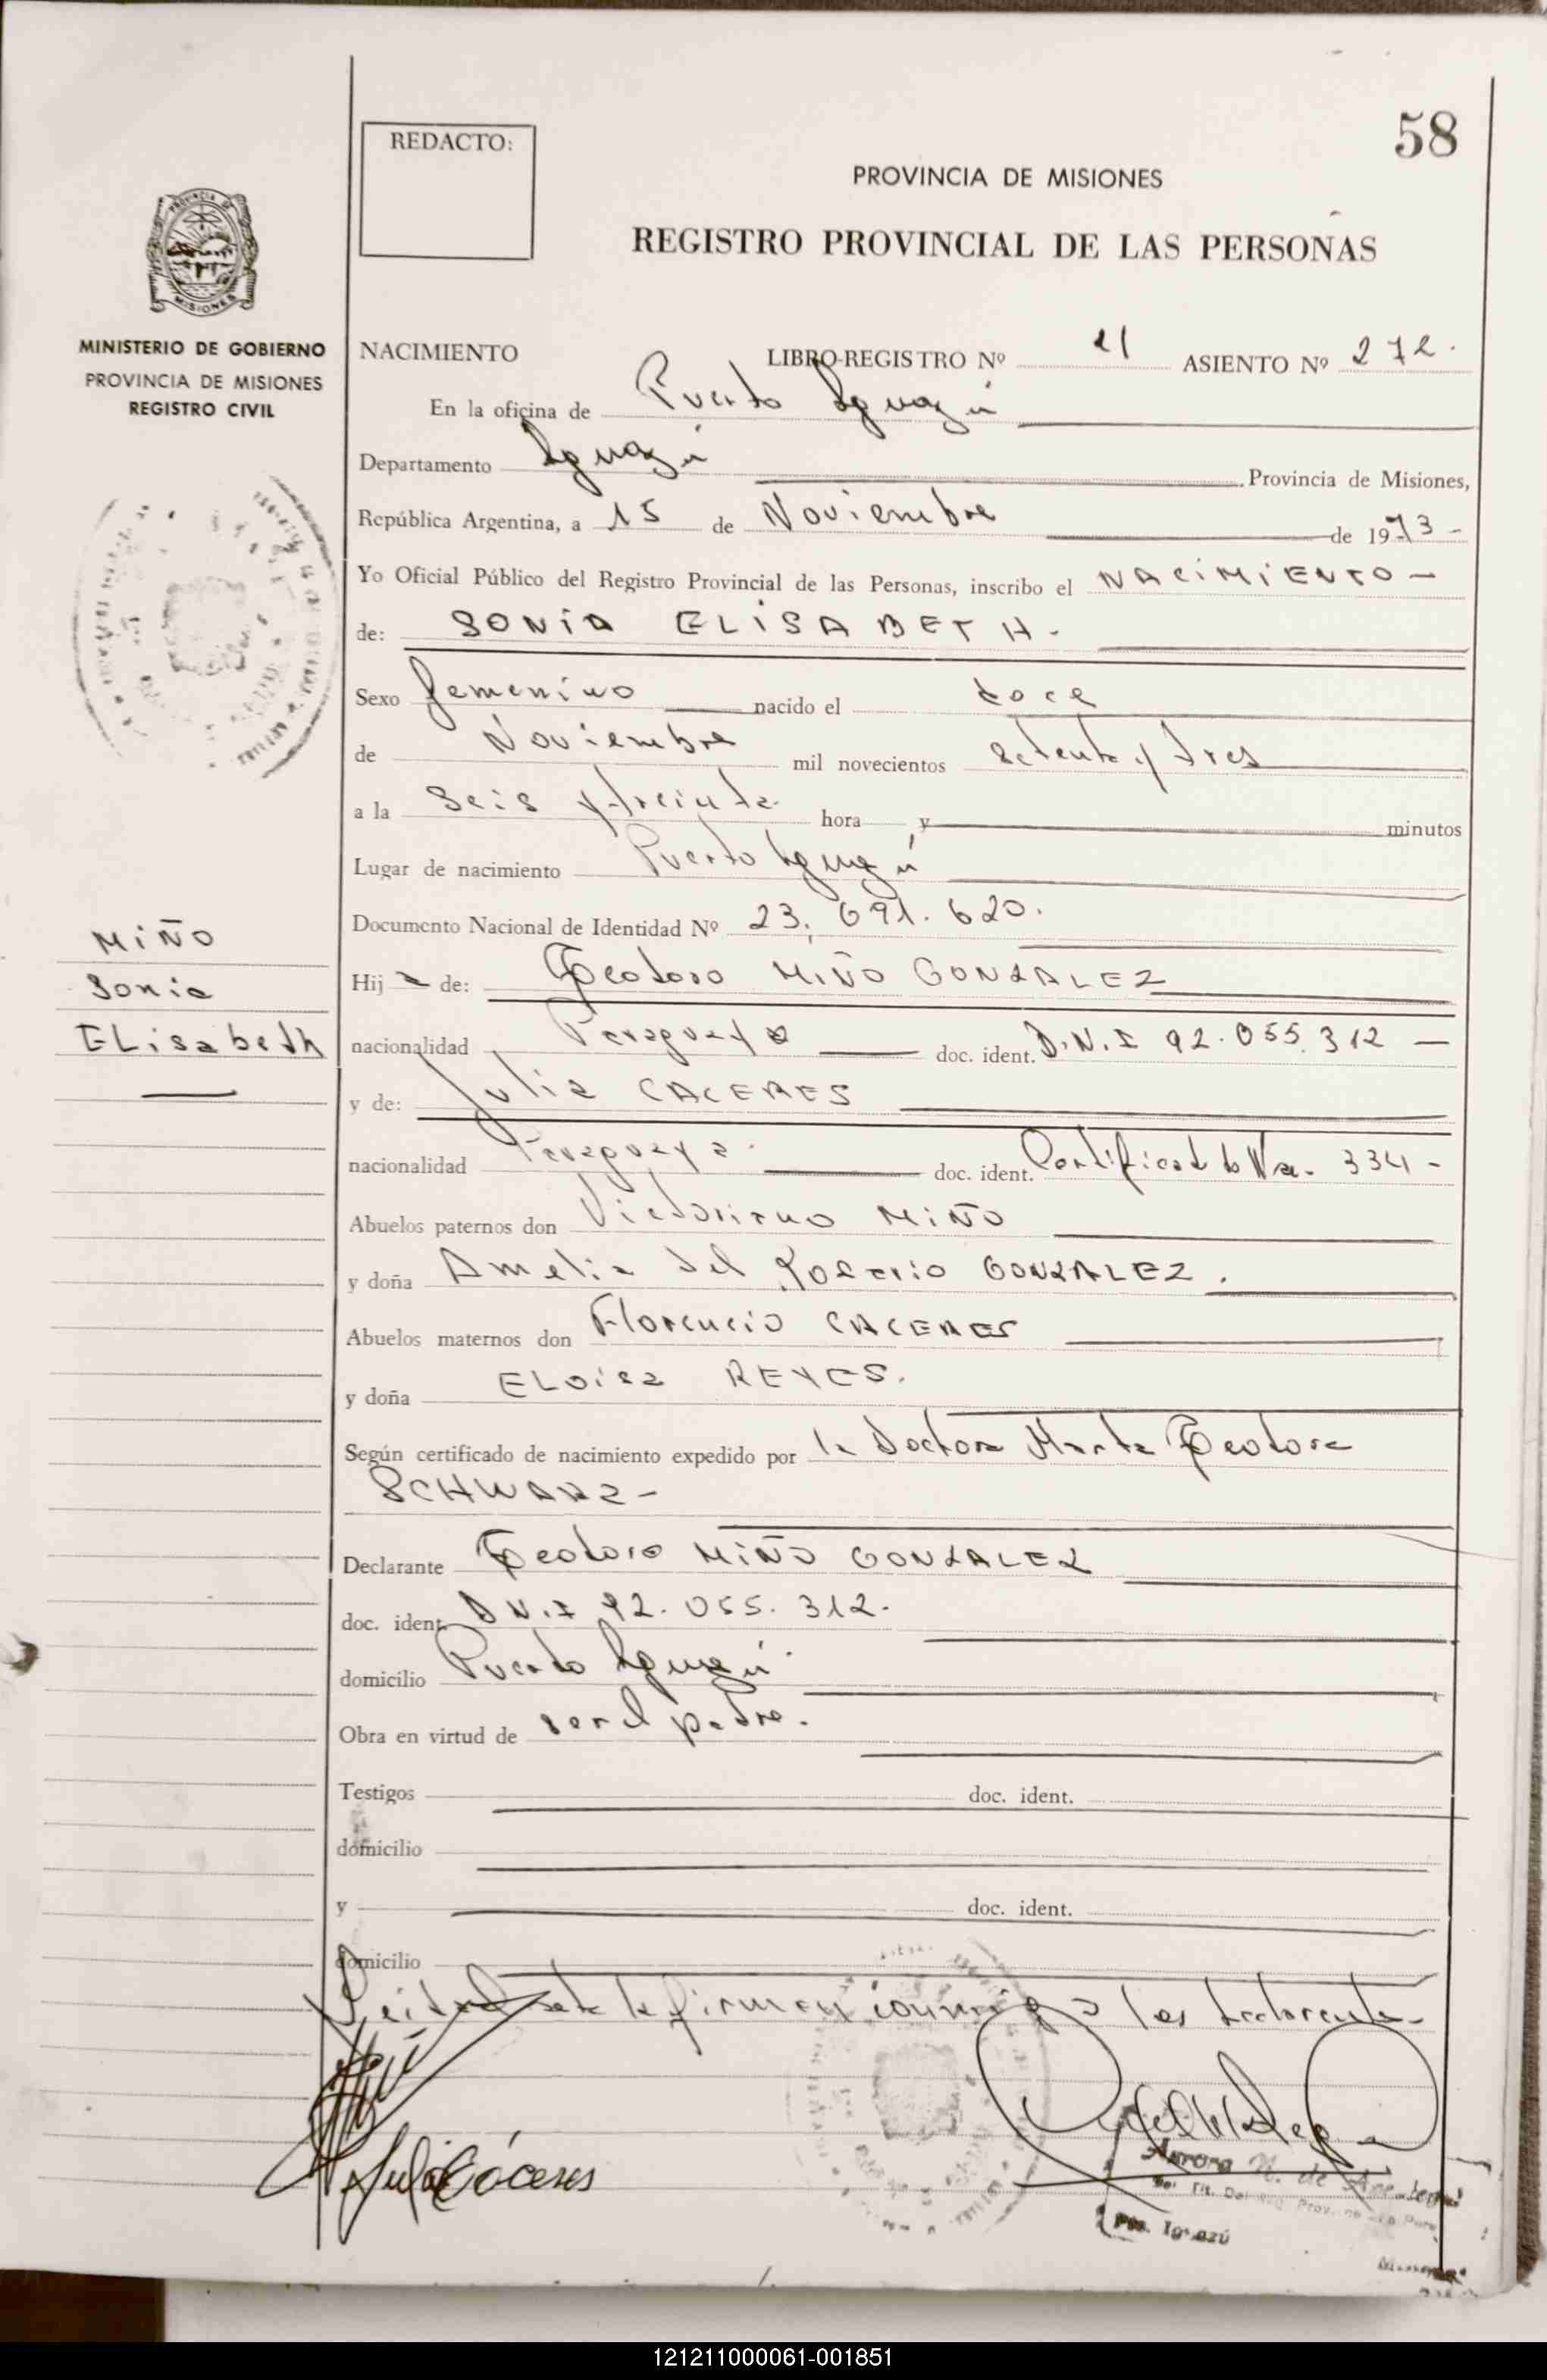 58
REDACTO:
PROVINCIA DE MISIONES
REGISTRO PROVINCIAL DE LAS PERSONAS
MISIONES
MINISTERIO DE GOBIERNO
PROVINCIA DE MISIONES
REGISTRO CIVIL
NACIMIENTO LIBRO-REGISTRO Nº 21 ASIENTO Nº 272.
En la oficina de Puerto Iguazú
Departamento Iguazú Provincia de Misiones,
República Argentina, a 15 de Noviembre de 1973-
Yo Oficial Público del Registro Provincial de las Personas, inscribo el NACIMIENTO -
de: SONIA ELISABETH.
Sexo femenino nacido el doce
de Noviembre mil novecientos setenta y tres
a la seis y treinta hora y minutos
Lugar de nacimiento Puerto Iguazú
Documento Nacional de Identidad Nº 23.691.620.
MIÑO
Sonia
ELisabeth
Hija de: Teodoro MIÑO GONZALEZ
nacionalidad Paraguaya doc. ident. D.N.I 92.055.312 -
y de: Julia CACERES
nacionalidad Paraguaya. doc. ident. Certificado Nro. 334 -
Abuelos paternos don Victoriano MIÑO
y doña Amelia del Rosario GONZALEZ.
Abuelos maternos don Florencio CACERES
y doña ELoisa REYES.
Según certificado de nacimiento expedido por la Doctora Marta Teodora
SCHWARZ-
Declarante Teodoro MIÑO GONZALEZ
doc. ident. D N.I 92.055.312.
domicilio Puerto Iguazú.
Obra en virtud de ser el padre.
Testigos doc. ident.
domicilio
y doc. ident.
domicilio
Leída el acta la firman conmigo los declarantes-
Julia Cáceres
Aurora N. de
Pto. Iguazú
121211000061-001851